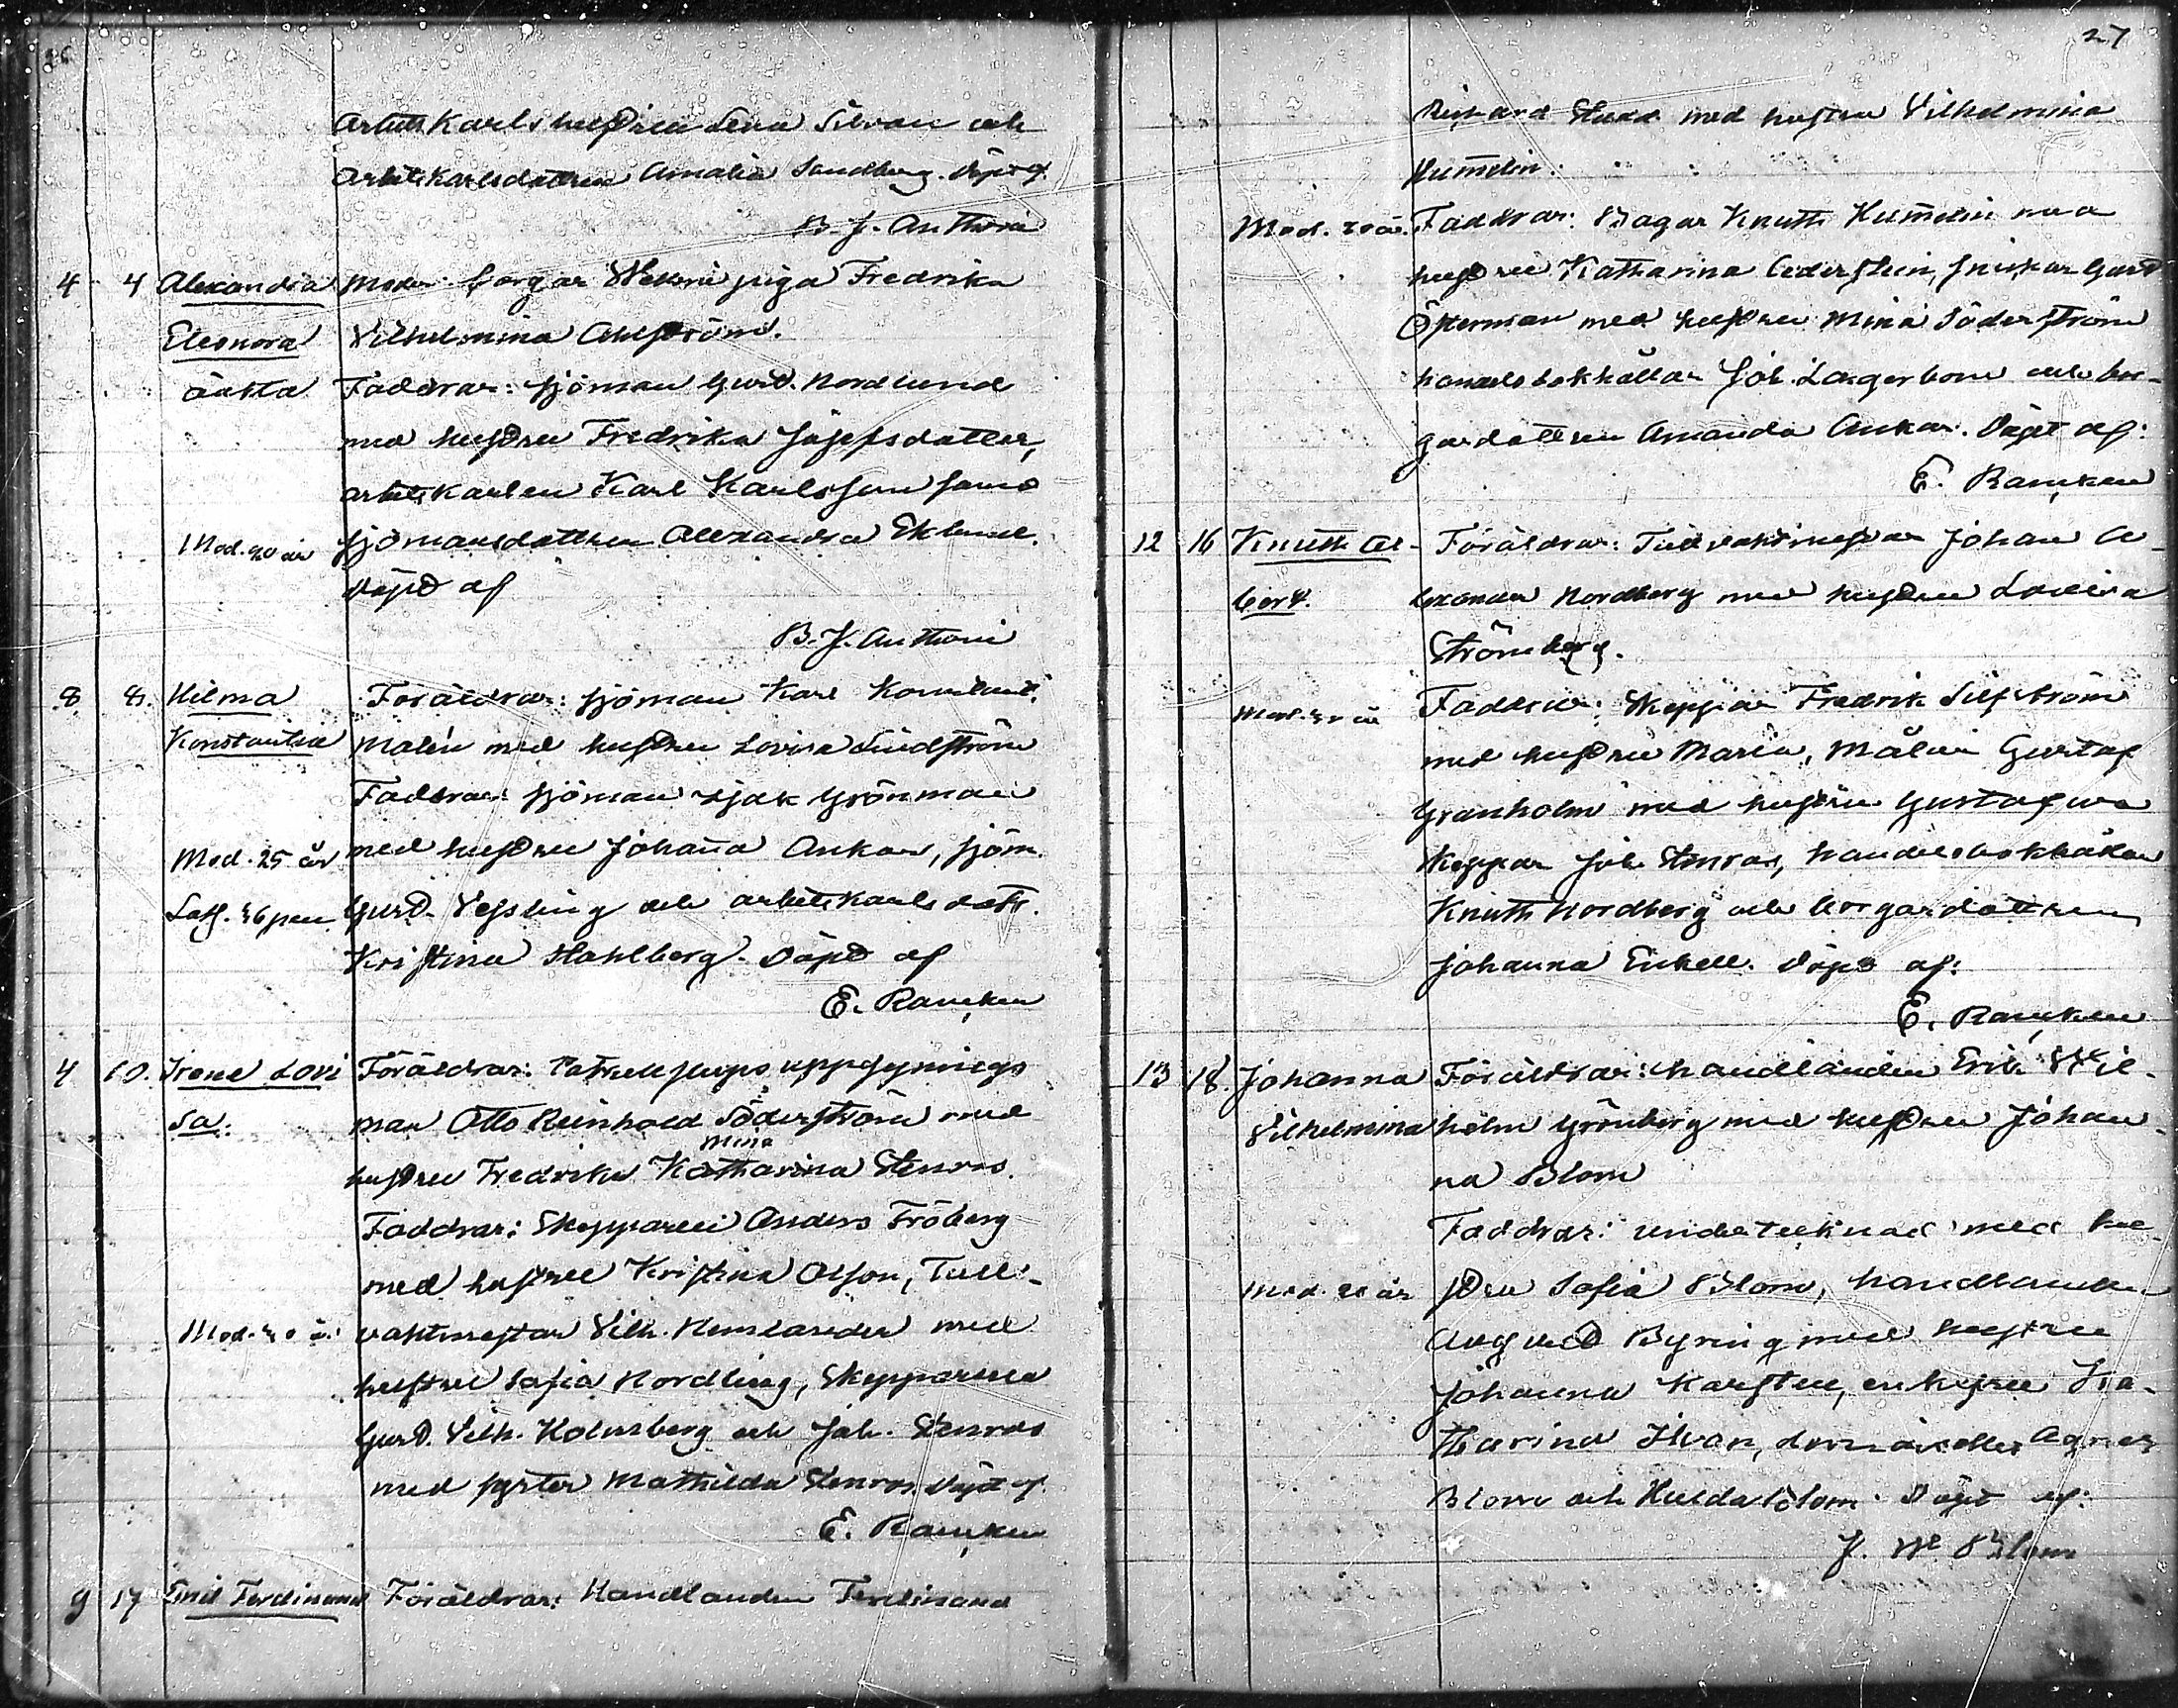 26
Arbets Karlshustrun Lena Silvan och
Arbets Karlsdottren Amalia Sundberg. Döpt af
B. J. Anthoni
4 4 Alexandra Moder: borgar piga Fredrika
Eleonora Vilhelmina Ahlström.
oäkta Faddrar: sjöman Gust. Nordlund
med hustru Fredrika Josefsdotter,
arbets karlen Karl Karlsson samt
Mod. 20 år sjömansdottren Alexandra Eklund.
Döpt af
B. J. Anthoni
8 8. Hilma Föräldrar: sjöman Karl Konstant.
Konstantia Malén med hustru Lovisa Lindström
Faddrar: sjöman Isak Grönman
Mod. 25 år med hustru Johanna Ankar, sjöm.
Gust. Vessling och arbetskarlsdottr.
Kristina Stahlberg. Döpt af
E. Rancken
4 10. Irene Lovi Föräldrar: uppsynings
sa. man Otto Reinhold Söderström med
Mina
hustru Fredrika Katharina Stenros.
Faddrar: Skepparen Anders Fröberg
med hustru Kristina Olson, Tull-
Mod. 20 år vaktmästar Vilh. med
hustru Sofia Nordling, Skepparna
Gust. Vilh. Holmberg och Joh. Stenros
med syster Mathilda Stenros Döpt af
E. Rancken
9 17 Emil Ferdinand Föräldrar: Handlanden Ferdinand
27
Richard med hustru Vilhelmina
Hummelin.
Mod. 20 år. Faddrar: Bagar Knuth Hummelin med
hustru Katharina Cederstein, snickar Gust
Österman med hustru Mina Söderström
handelsbokhållar Joh. Lagerbom och bor-
gardottren Amanda Ankar. Döpt af:
E. Rancken
12 16 Knuth Al- Föräldrar: Tullvaktmästar Johan A-
bert. lexander Nordberg med hustru Lovisa
Strömberg.
Mod. år Faddrar: Skeppar Fredrik Silfström
med hustru Maria, Målar Gustaf
Granholm med hustru Gustafva
skeppar Joh. Stenros, handelsbokhållar
Knuth Nordberg och borgardottren
Johanna Enkell. Döpt af:
E. Rancken
13 18. Johanna Föräldrar: handlanden Erik Wil-
Vilhelmina helm Grönberg med hustru Johan-
na Blom
Faddrar: undertecknad med hu-
Mod. 20 år stru Sofia Blom, handlanden
August Byring med hustru
Johanna Karsten, enkefru Ka-
tharina Ilvan, demoiseller Agnes
Blom och Hulda Blom. Döpt af:
J. W. Blom